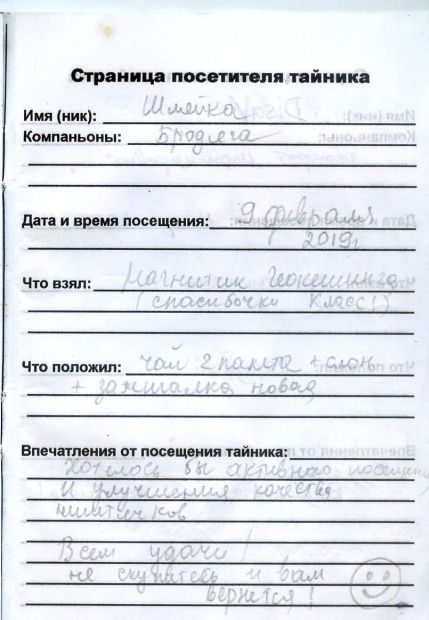 Страница посетителя тайника
Имя (ник): Шмейка
Компаньоны: Бродяга
Дата и время посещения: 9 февраля
2019г
Что взял: Магнитик Геокешинга
(спасибочки класс!)
Что положил: чай 2 пакета + слон
+ зажигалка новая
Впечатления от посещения тайника:
Хотелось бы активного посещения
И улучшения качества
ништячков
Всем удачи!
не скупитесь и вам
вернется!